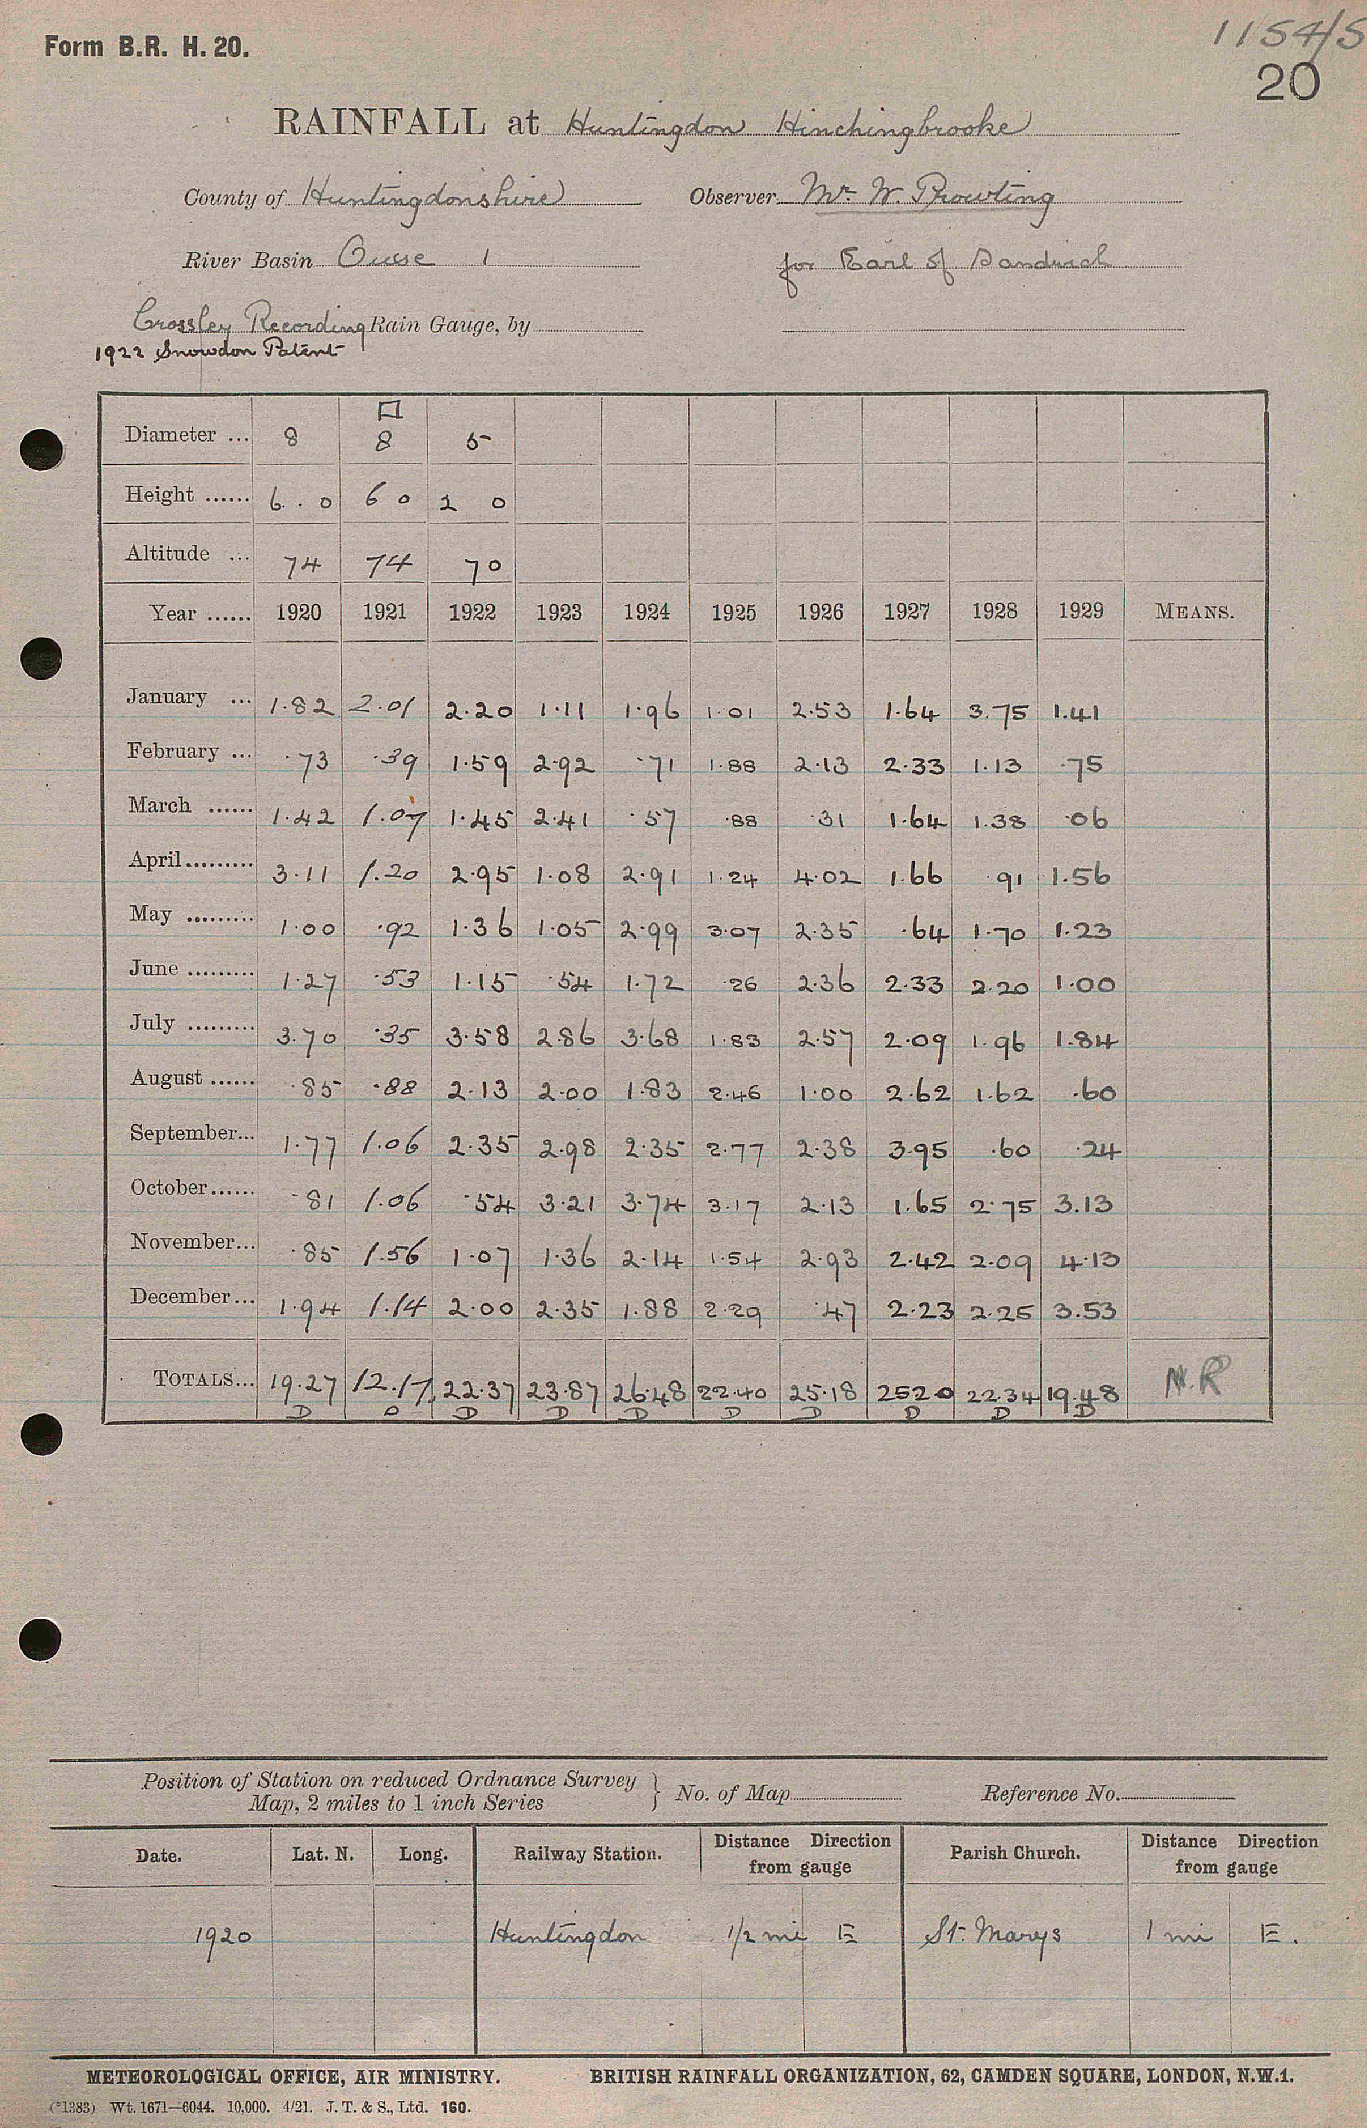 Form B.R. H. 20.
1154/5
20
RAINFALL at Huntingdon Hinchingbrooke
County of Huntingdonshire Observer Mr. W. Prowting
River Basin Ouse 1 for Earl of Sandwich
Crossley Recording Rain Gauge, by
1922 Snowdon Patent
Diameter ... 8 8 5
Height ...... 6 . 0 6 0 2 0
Altitude ... 74 74 70
Year ...... 1920 1921 1922 1923 1924 1925 1926 1927 1928 1929 MEANS.
January ... 1.82 2.01 2.20 1.11 1.96 1.01 2.53 1.64 3.75 1.41
February ... .73 .39 1.59 2.92 .71 1.88 2.13 2.33 1.13 .75
March ...... 1.42 1.07 1.45 2.41 .57 .88 .31 1.64 1.38 .06
April ......... 3.11 1.20 2.95 1.08 2.91 1.24 4.02 1.66 .91 1.56
May ......... 1.00 .92 1.36 1.05 2.99 3.07 2.35 .64 1.70 1.23
June ......... 1.27 .53 1.15 .54 1.72 .26 2.36 2.33 2.20 1.00
July ......... 3.70 .35 3.58 2.86 3.68 1.83 2.57 2.09 1.96 1.84
August ...... .85 .88 2.13 2.00 1.83 2.46 1.00 2.62 1.62 .60
September... 1.77 1.06 2.35 2.98 2.35 2.77 2.38 3.95 .60 .24
October ...... .81 1.06 .54 3.21 3.74 3.17 2.13 1.65 2.75 3.13
November... .85 1.56 1.07 1.36 2.14 1.54 2.93 2.42 2.09 4.13
December... 1.94 1.14 2.00 2.35 1.88 2.29 .47 2.23 2.25 3.53
TOTALS... 19.27 12.17 22.37 23.87 26.48 22.40 25.18 25.20 22.34 19.48 N.R
D D D D D D D D D
Position of Station on reduced Ordnance Survey
Map, 2 miles to 1 inch Series } No. of Map Reference No.
Date. Lat. N. Long. Railway Station. Distance Direction from gauge Parish Church. Distance Direction from gauge
1920 Huntingdon 1/2 mi E St. Marys 1 mi E.
METEOROLOGICAL OFFICE, AIR MINISTRY. BRITISH RAINFALL ORGANIZATION, 62, CAMDEN SQUARE, LONDON, N.W.1.
(*1383) Wt. 1671—6044. 10,000. 4/21. J. T. & S., Ltd. 160.